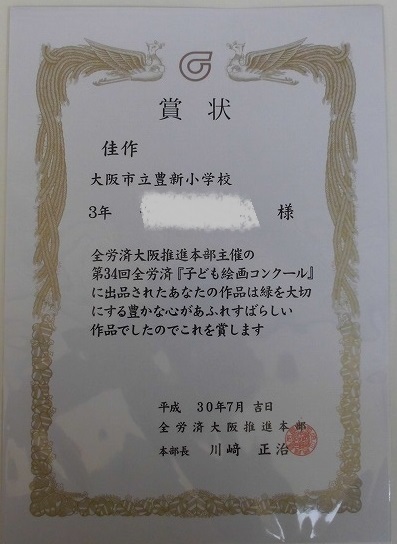 賞状
佳作
大阪市立豊新小学校
3年 様
全労済大阪推進本部主催の
第34回全労済『子ども絵画コンクール』
に出品されたあなたの作品は緑を大切
にする豊かな心があふれすばらしい
作品でしたのでこれを賞します
平成 30年7月 吉日
全労済大阪推進本部
本部長 川﨑 正治